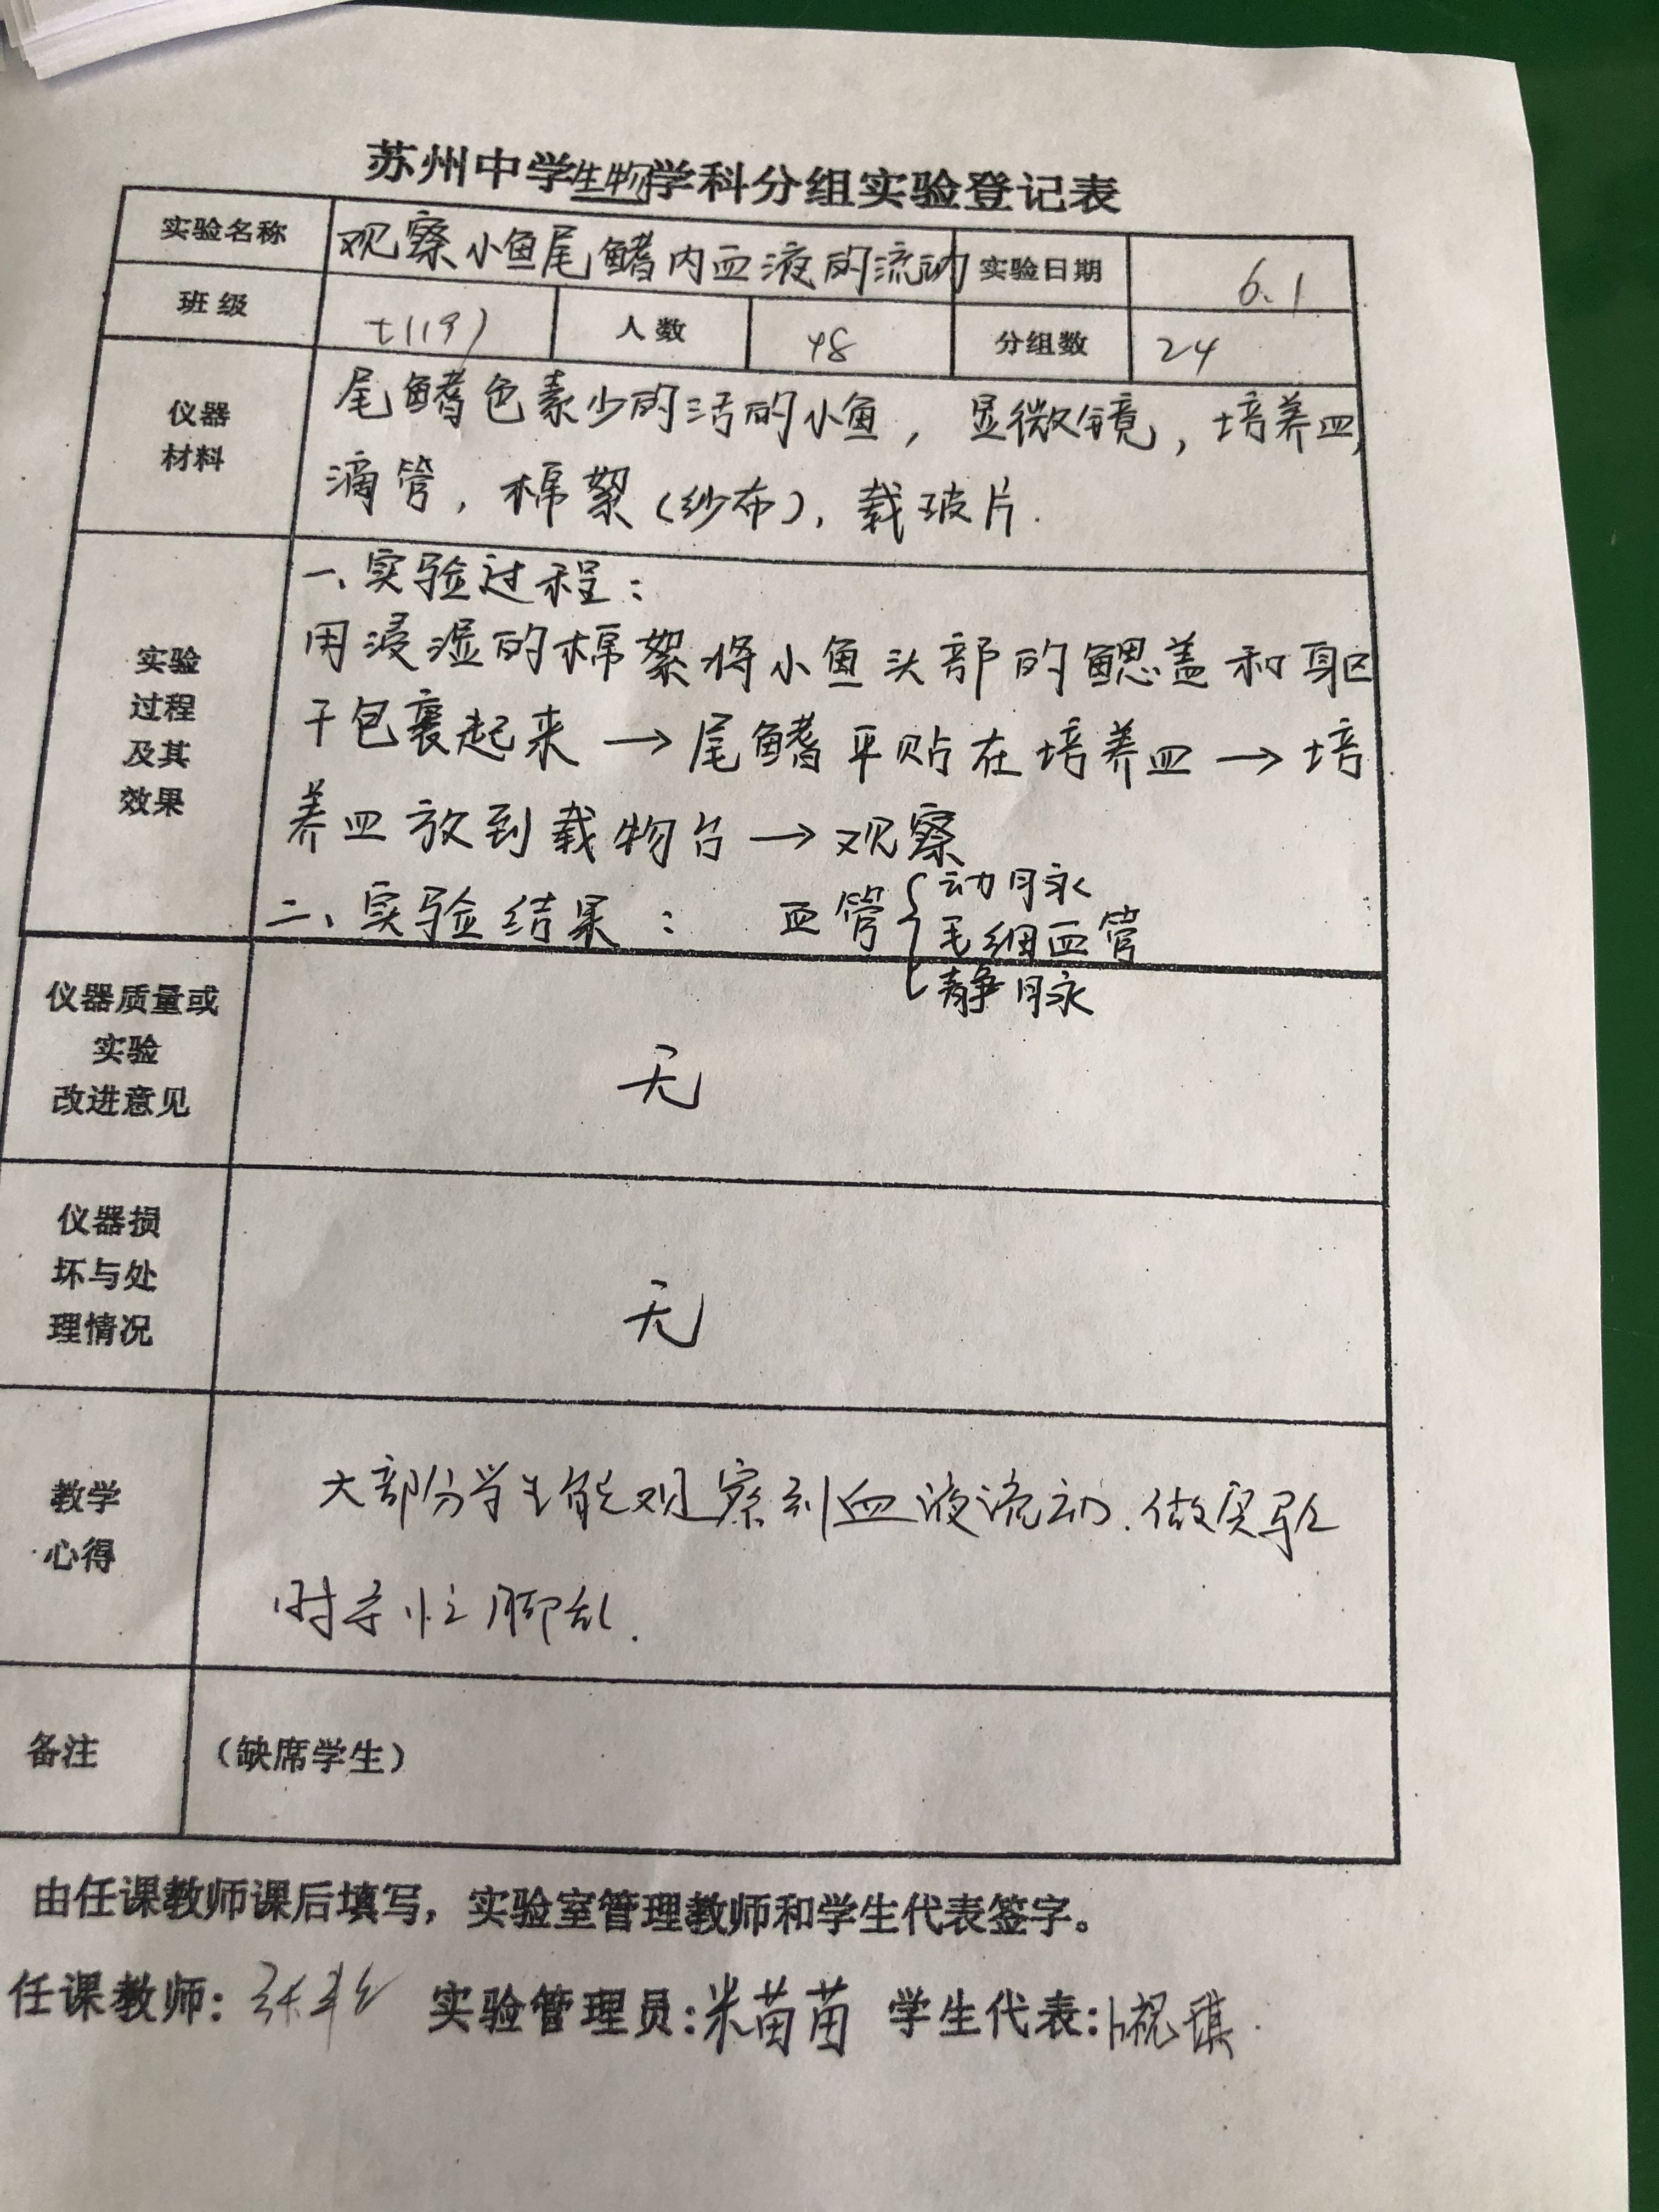 苏州中学生物学科分组实验登记表
实验名称 观察小鱼尾鳍内血液的流动 实验日期 6.1
班级 七(19) 人数 48 分组数 24
仪器
材料
尾鳍色素少的活的小鱼，显微镜，培养皿，
滴管，棉絮(纱布)，载玻片.
实验
过程
及其
效果
一、实验过程：
用浸湿的棉絮将小鱼头部的鳃盖和躯
干包裹起来→尾鳍平贴在培养皿→培
养皿放到载物台→观察
二、实验结果： 血管{动脉
毛细血管
静脉
仪器质量或
实验
改进意见
无
仪器损
坏与处
理情况
无
教学
心得
大部分学生能观察到血液流动.做实验
时手忙脚乱.
备注 （缺席学生）
由任课教师课后填写，实验室管理教师和学生代表签字。
任课教师： 实验管理员：米苗苗 学生代表：卜祝祺